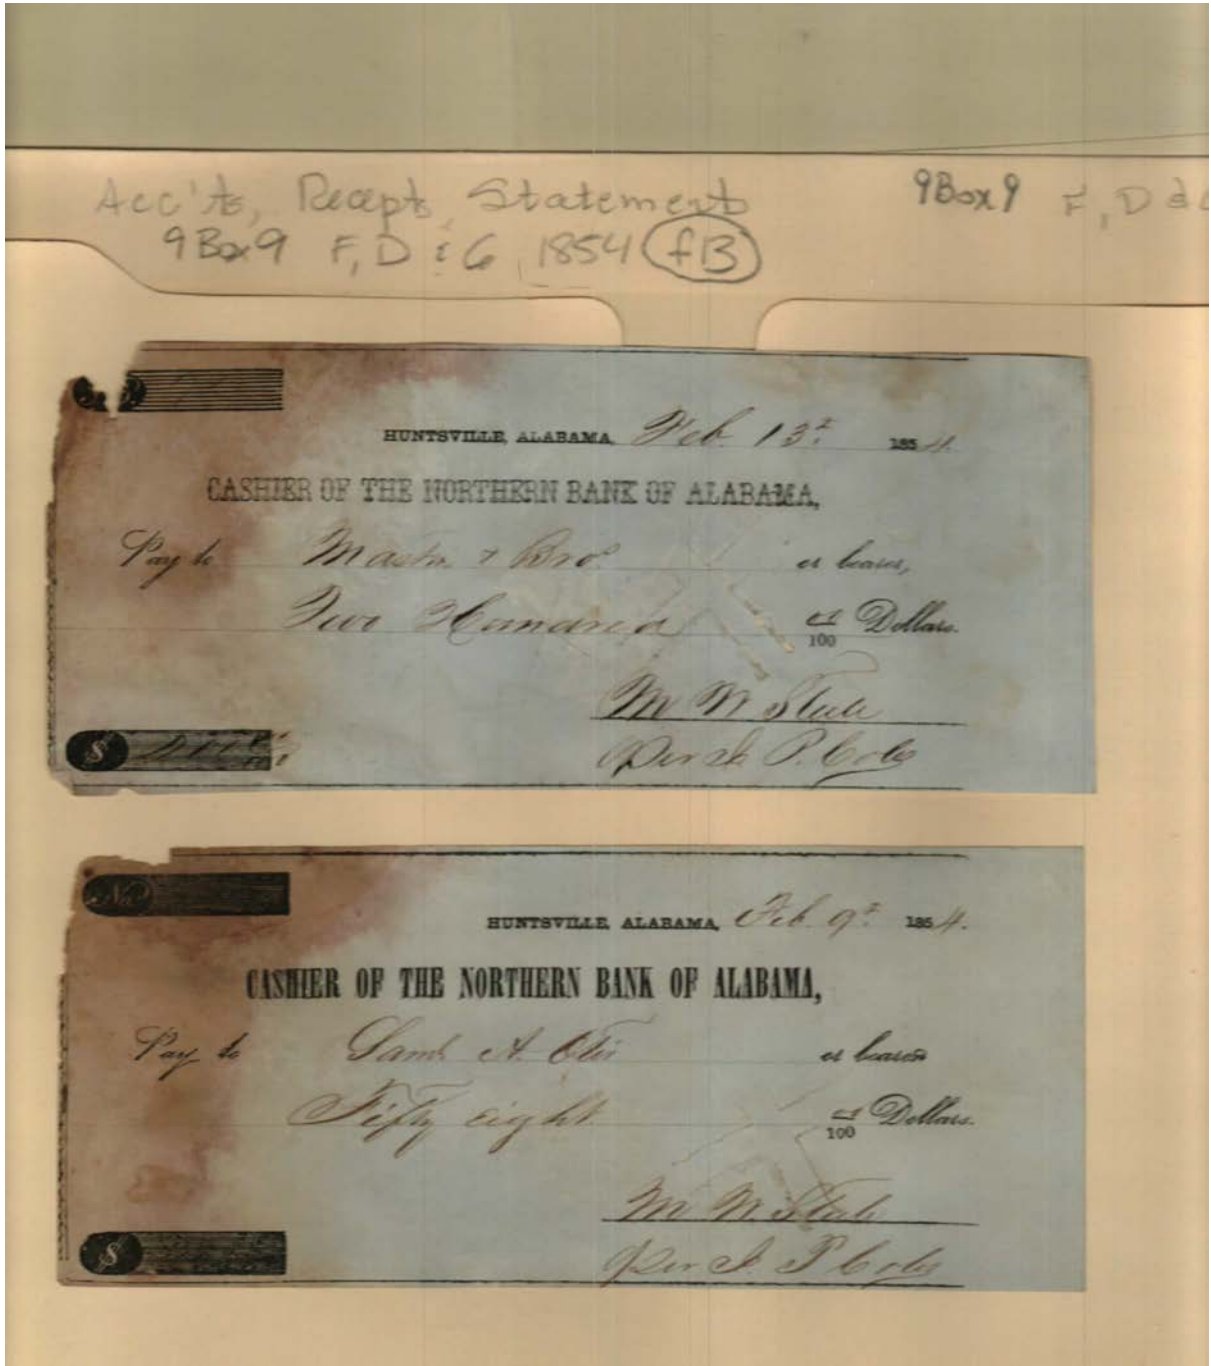 Acc'ts, Recepts, Statement
9Box9 F, D & G 1854 f13
9Box9 F, D &
HUNTSVILLE, ALABAMA, Feb. 13th 1854.
CASHIER OF THE NORTHERN BANK OF ALABAMA,
Pay to & Bro or bearer,
Two Hundred 100 Dollars.
M W
Per P. Coles
$
No
HUNTSVILLE, ALABAMA, Feb. 9th 1854.
CASHIER OF THE NORTHERN BANK OF ALABAMA,
Pay to A. or bearer
Fifty eight 100 Dollars.
M W
Per P Coles
$